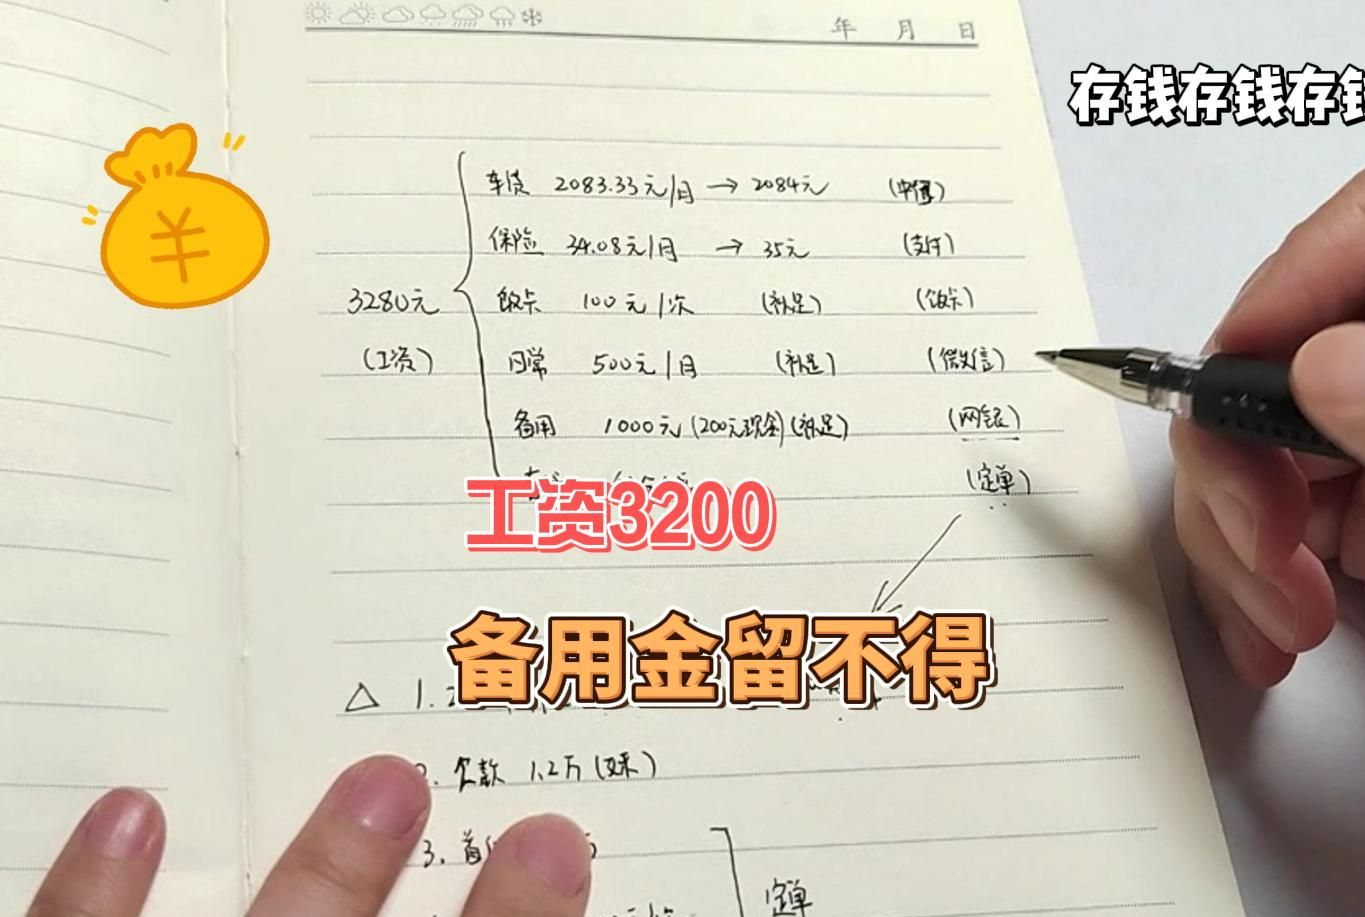 年 月 日
存钱存钱存钱
¥
车贷 2083.33元/月 → 2084元 (中信)
保险 34.08元/月 → 35元 (支付)
3280元
饭卡 100元/次 (补足) (饭卡)
(工资)
日常 500元/月 (补足) (微信)
备用 1000元 (200元现金) (补足) (网银)
(定单)
工资3200
备用金留不得
△ 1.
欠款 1.2万
3. 首
定单